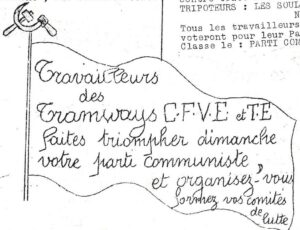 TRIPOTEURS : LES SOUL
N
Tous les travailleurs
voteront pour leur Pa
Classe le : PARTI COM
Travailleurs
des
Tramways C.F.V.E et T.E
faites triompher dimanche
votre parti communiste
et organisez-vous
formez vos comités
de
lutte